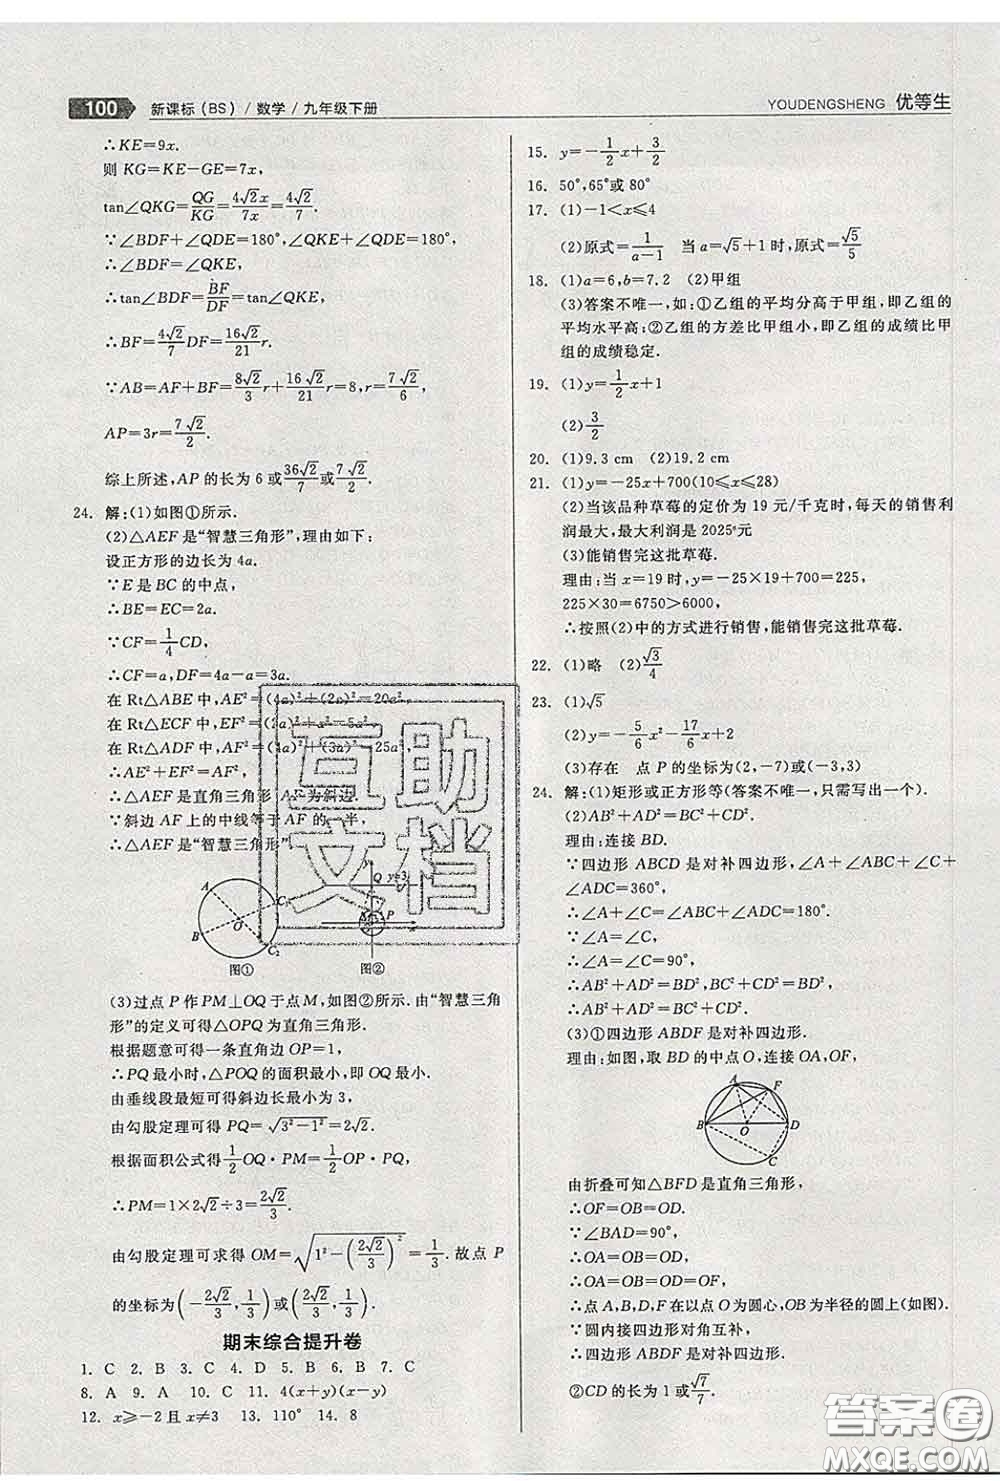 100 新课标(BS)/数学/九年级下册
YOUDENGSHENG 优等生
∴KE=9x.
则 KG=KE−GE=7x,
tan∠QKG=QG/KG=4√2x/7x=4√2/7.
∵∠BDF+∠QDE=180°,∠QKE+∠QDE=180°,
∴∠BDF=∠QKE,
∴tan∠BDF=BF/DF=tan∠QKE,
∴BF=4√2/7DF=16√2/21r.
∵AB=AF+BF=8√2/3r+16√2/21r=8,r=7√2/6,
AP=3r=7√2/2.
综上所述,AP 的长为 6 或36√2/7或7√2/2.
24. 解:(1)如图①所示.
(2)△AEF 是“智慧三角形”,理由如下:
设正方形的边长为 4a.
∵E 是 BC 的中点,
∴BE=EC=2a.
∵CF=1/4CD,
∴CF=a,DF=4a−a=3a.
在 Rt△ABE 中,AE²=(4a)²+(2a)²=20a².
在 Rt△ECF 中,EF²=(2a)²+a²=5a².
在 Rt△ADF 中,AF²=(4a)²+(3a)²=25a².
∴AE²+EF²=AF²,
∴△AEF 是直角三角形,AF 为斜边.
∵斜边 AF 上的中线等于 AF 的一半,
∴△AEF 是“智慧三角形”.
A B O C₁ C₂
图①
Q y=3 P
图②
(3)过点 P 作 PM⊥OQ 于点 M,如图②所示.由“智慧三角
形”的定义可得△OPQ 为直角三角形.
根据题意可得一条直角边 OP=1,
∴PQ 最小时,△POQ 的面积最小,即 OQ 最小.
由垂线段最短可得斜边长最小为 3,
由勾股定理可得 PQ=√(3²−1²)=2√2.
根据面积公式得1/2OQ·PM=1/2OP·PQ,
∴PM=1×2√2÷3=2√2/3.
由勾股定理可求得 OM=√(1²−(2√2/3)²)=1/3.故点 P
的坐标为(−2√2/3,1/3)或(2√2/3,1/3).
期末综合提升卷
1. C 2. B 3. C 4. D 5. B 6. B 7. C
8. A 9. A 10. C 11. 4(x+y)(x−y)
12. x≥−2 且 x≠3 13. 110° 14. 8
15. y=−1/2x+3/2
16. 50°,65°或 80°
17. (1)−1<x≤4
(2)原式=1/(a−1) 当 a=√5+1 时,原式=√5/5
18. (1)a=6,b=7.2 (2)甲组
(3)答案不唯一,如:①乙组的平均分高于甲组,即乙组的
平均水平高;②乙组的方差比甲组小,即乙组的成绩比甲
组的成绩稳定.
19. (1)y=1/2x+1
(2)3/2
20. (1)9.3 cm (2)19.2 cm
21. (1)y=−25x+700(10≤x≤28)
(2)当该品种草莓的定价为 19 元/千克时,每天的销售利
润最大,最大利润是 2025 元
(3)能销售完这批草莓.
理由:当 x=19 时,y=−25×19+700=225,
225×30=6750>6000,
∴按照(2)中的方式进行销售,能销售完这批草莓.
22. (1)略 (2)√3/4
23. (1)√5
(2)y=−5/6x²−17/6x+2
(3)存在 点 P 的坐标为(2,−7)或(−3,3)
24. 解:(1)矩形或正方形等(答案不唯一,只需写出一个).
(2)AB²+AD²=BC²+CD².
理由:连接 BD.
∵四边形 ABCD 是对补四边形,∠A+∠ABC+∠C+
∠ADC=360°,
∴∠A+∠C=∠ABC+∠ADC=180°.
∵∠A=90°,
∴∠A=∠C=90°,
∴AB²+AD²=BD²,BC²+CD²=BD²,
∴AB²+AD²=BC²+CD².
(3)①四边形 ABDF 是对补四边形.
理由:如图,取 BD 的中点 O,连接 OA,OF,
A F B O D C
由折叠可知△BFD 是直角三角形,
∴OF=OB=OD.
∵∠BAD=90°,
∴OA=OB=OD,
∴OA=OB=OD=OF,
∴点 A,B,D,F 在以点 O 为圆心,OB 为半径的圆上(如图).
∵圆内接四边形对角互补,
∴四边形 ABDF 是对补四边形.
②CD 的长为 1 或√7/7.
互助
文档
答案圈
MXQE.COM